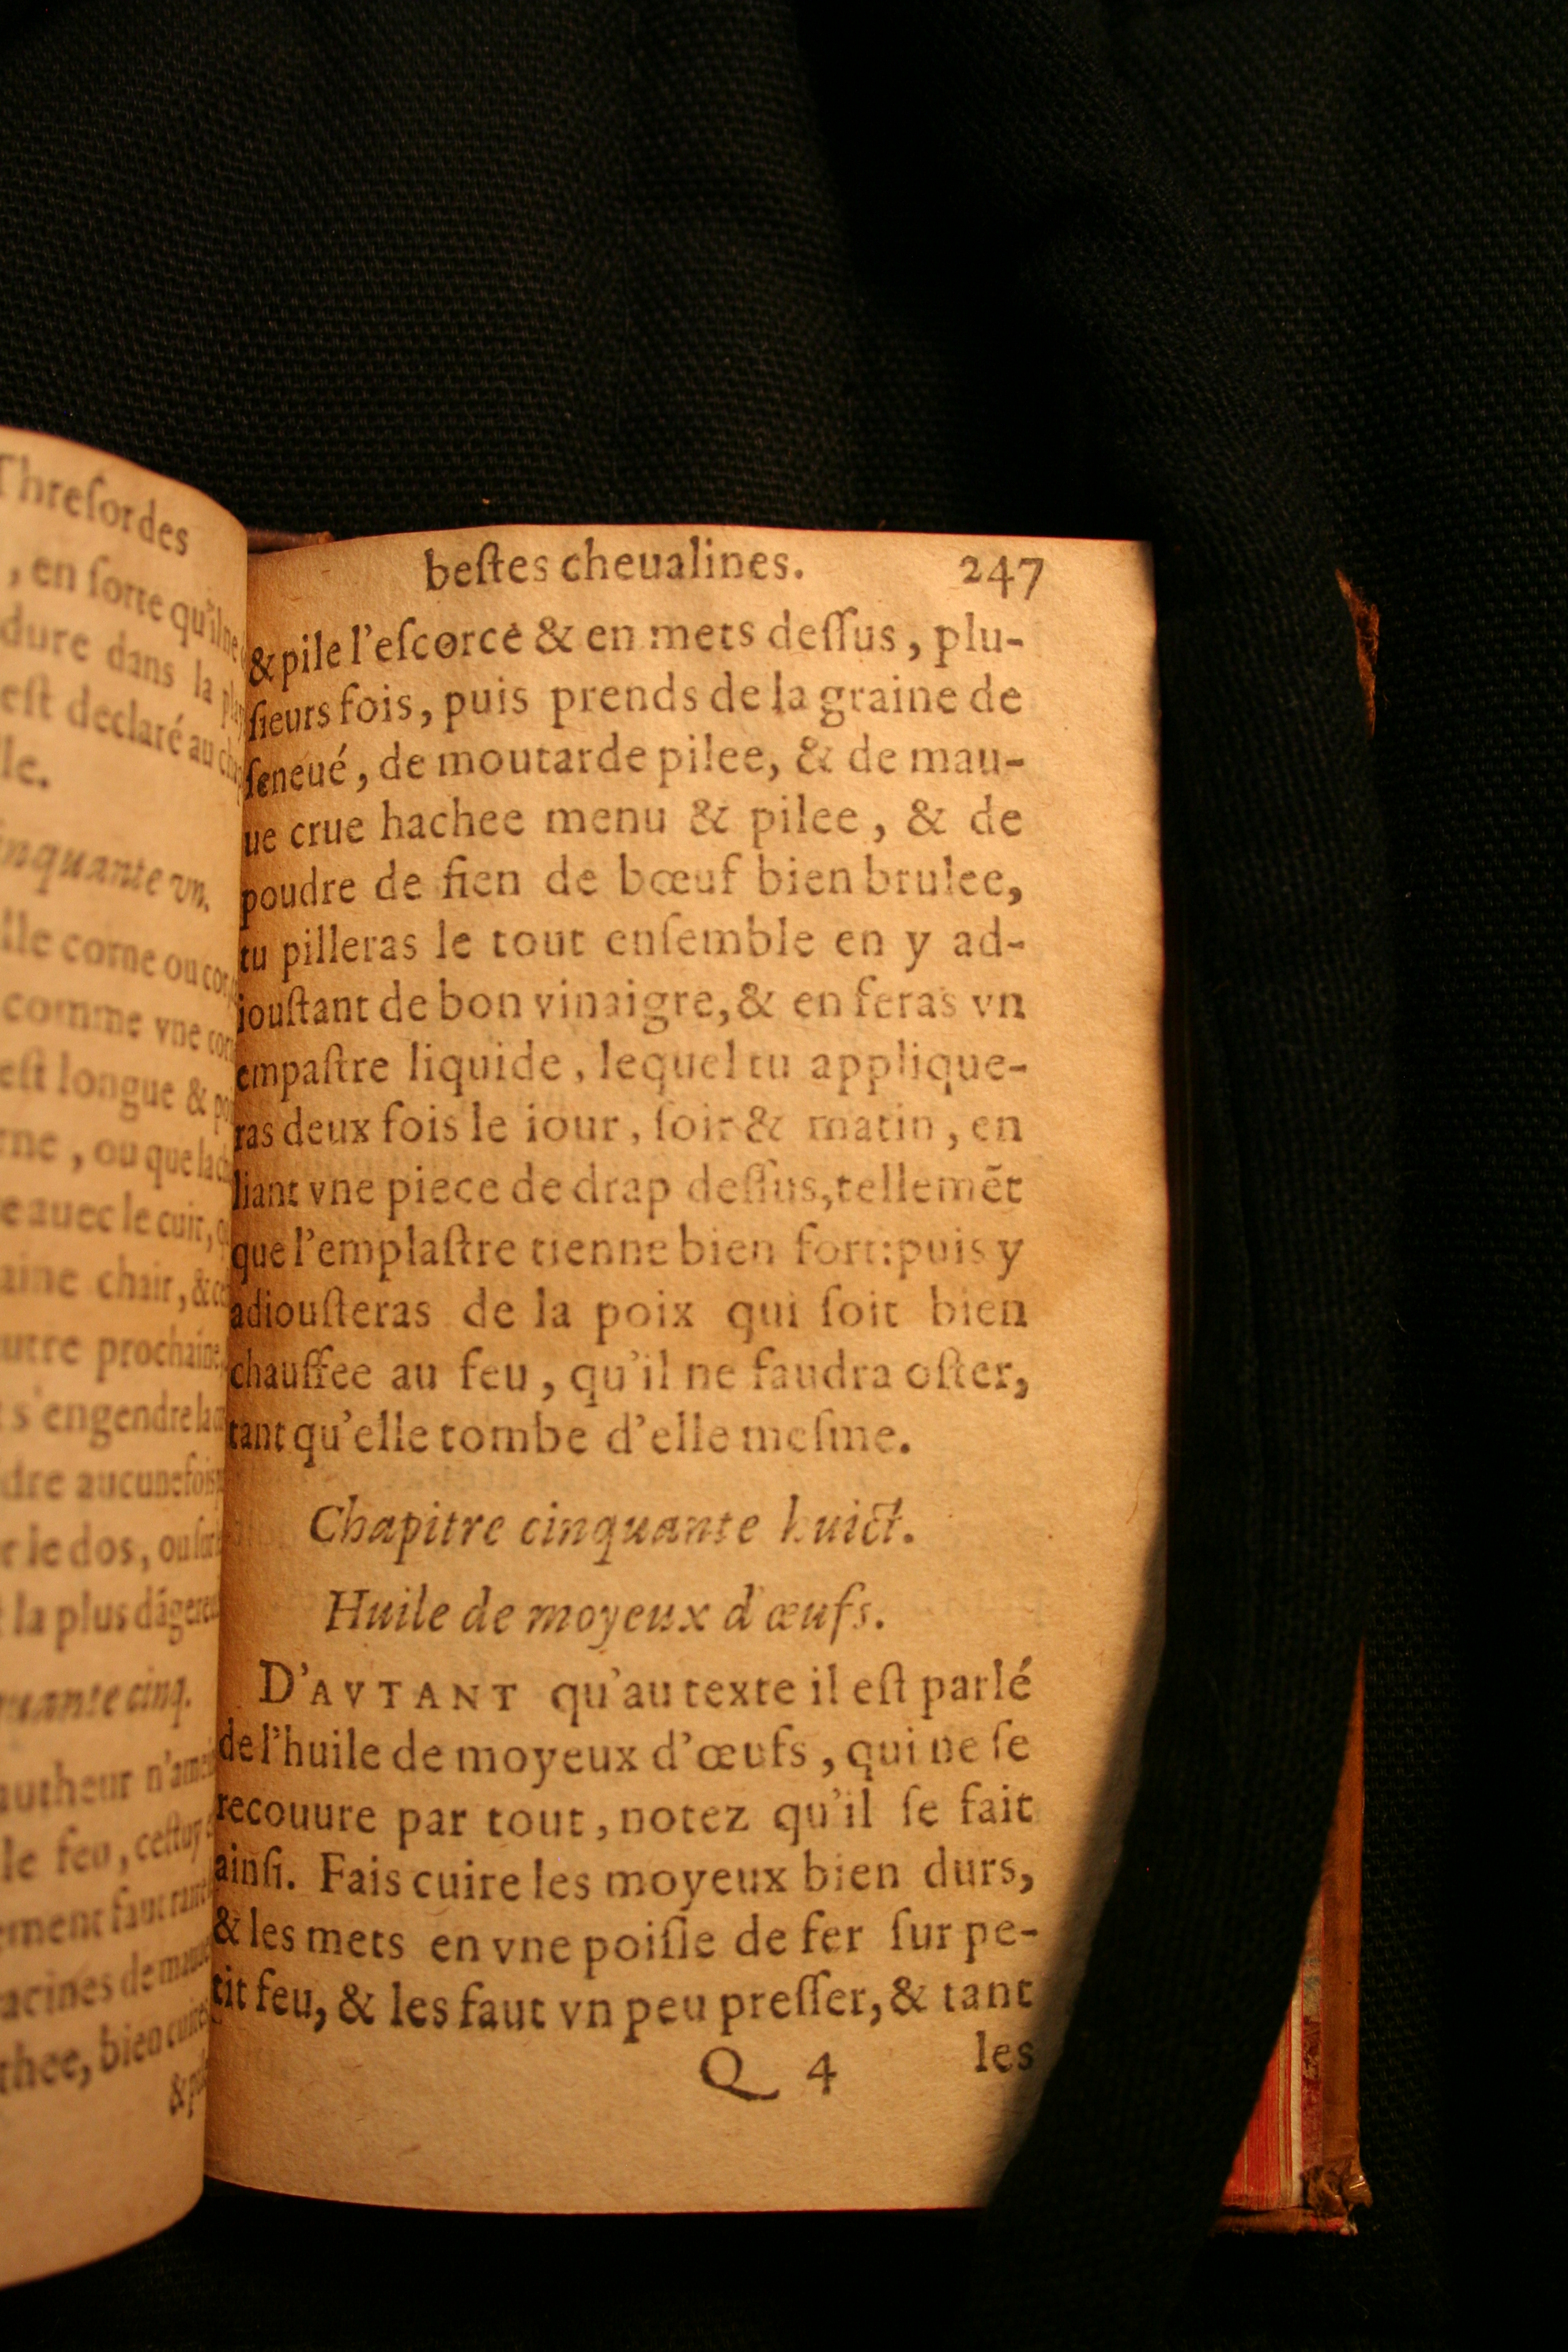 Thresor des
, en sorte qu'il ne
dure dans la
est declaré au
lle.
inquante vn.
lle corne ou
comme vne
est longue &
rne, ou que la
e auec le cuir,
aine chair, &
utre prochaine
s'engendre la
dre aucunefois
r le dos, ou
la plus dãgereu
uante cinq.
autheur n'a
le feu, cestuy
ement faut
acines de
thee, bien cuites
bestes cheualines. 247
& pile l'escorce & en mets dessus, plu-
sieurs fois, puis prends de la graine de
seneué, de moutarde pilee, & de mau-
ue crue hachee menu & pilee, & de
poudre de fien de bœuf bien brulee,
tu pilleras le tout ensemble en y ad-
ioustant de bon vinaigre, & en feras vn
empastre liquide, lequel tu applique-
ras deux fois le iour, soir & matin, en
liant vne piece de drap dessus, tellemẽt
que l'emplastre tienne bien fort: puis y
adiousteras de la poix qui soit bien
chauffee au feu, qu'il ne faudra oster,
tant qu'elle tombe d'elle mesme.
Chapitre cinquante huict.
Huile de moyeux d'œufs.
D'AVTANT qu'au texte il est parlé
de l'huile de moyeux d'œufs, qui ne se
recouure par tout, notez qu'il se fait
ainsi. Fais cuire les moyeux bien durs,
& les mets en vne poisle de fer sur pe-
tit feu, & les faut vn peu presser, & tant
Q 4 les